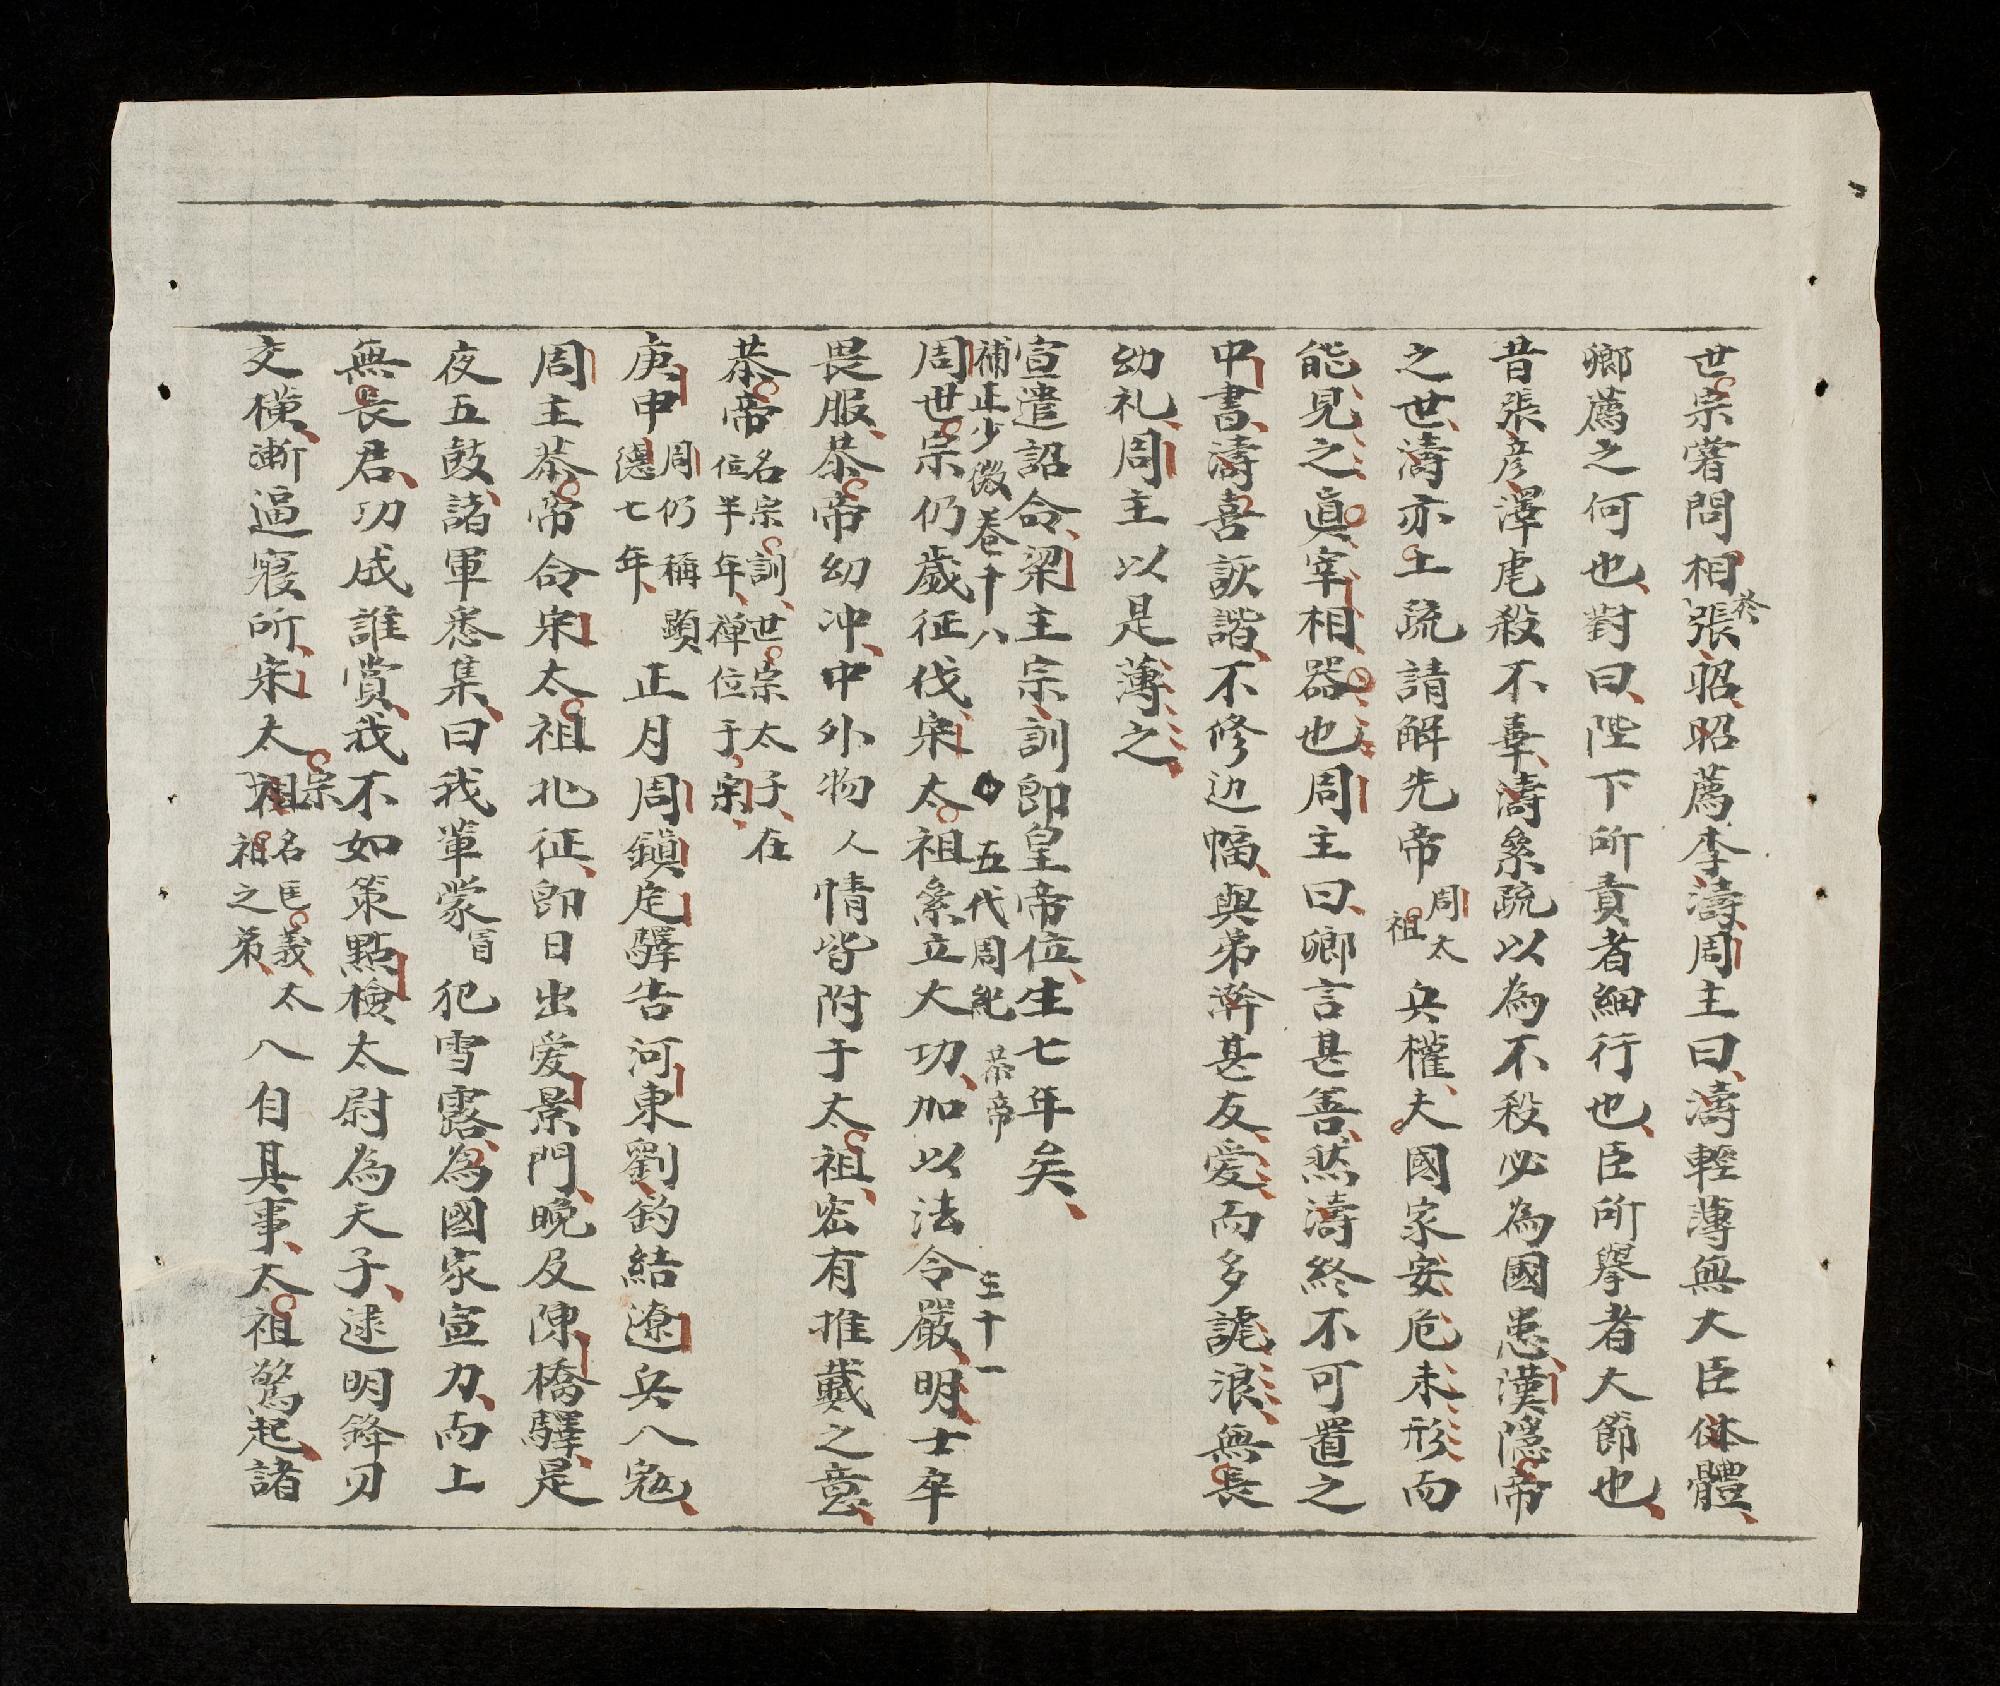 世宗甞問相於張昭昭薦李濤周主曰濤輕薄無大臣体體
卿薦之何也對曰陛下所責者細行也臣所舉者大節也
昔張彦澤虐殺不辜濤累疏以為不殺必為國患漢隱帝
之世濤亦上疏請解先帝周太祖兵權夫國家安危未形而
能見之真宰相器也周主曰卿言甚善然濤終不可置之
中書濤喜詼諧不修边幅與弟澣甚友愛而多謔浪無長
幼礼周主以是薄之
宣遣詔命梁主宗訓即皇帝位生七年矣
補正少微卷十八 五代周紀 恭帝 三十一
周世宗仍歲征伐宋太祖累立大功加以法令嚴明士卒
畏服恭帝幼冲中外物人情皆附于太祖密有推戴之意
恭帝名宗訓世宗太子在位半年禅位于宋
庚申周仍稱顯德七年正月周鎮定驛告河東劉鈞結遼兵入寇
周主恭帝命宋太祖北征即日出爱景門晚及陳橋驛是
夜五鼓諸軍悉集曰我軰蒙冒犯雪露為國家宣力而上
無長君功成誰賞我不如策點檢太尉為天子逮明鋒刃
交横漸逼寢所宋太祖宗名匡義太祖之弟入白其事太祖驚起諸